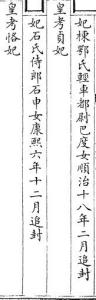 妃棟鄂氏輕車都尉巴度女順治十八年二月追封
皇考貞妃
妃石氏侍郎石申女康熙六年十二月追封
皇考恪妃